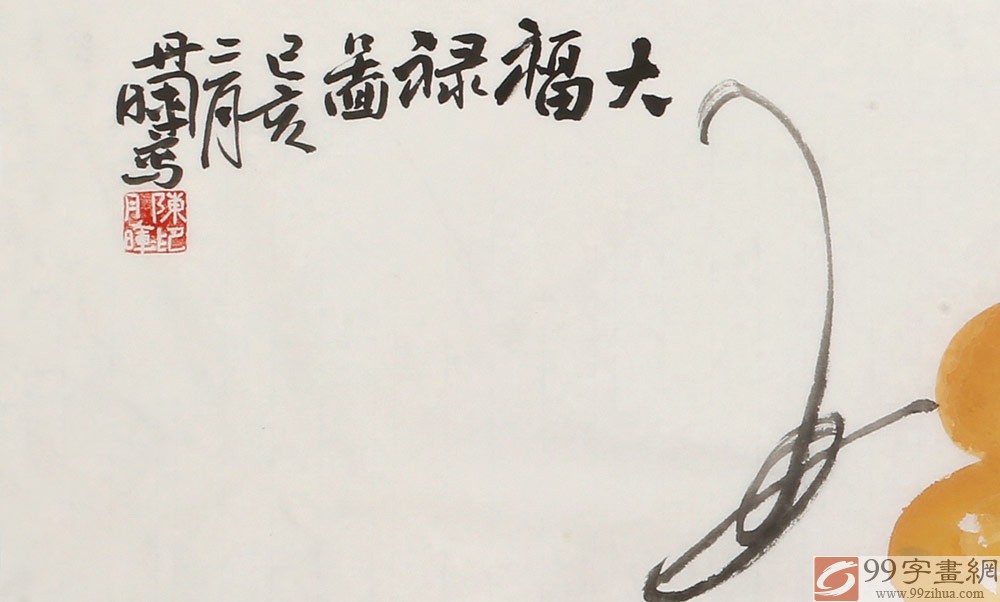 大福禄圖
己亥
二月
写
陳印
暉
99字畫網
www.99zihua.com